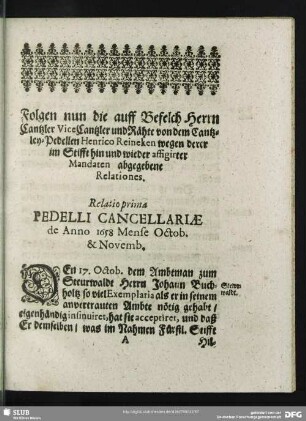 Folgen nun die auff Befelch Herrn
Cantzler ViceCantzler und Rähte von dem Cantz-
ley-Pedellen Henrico Reineken wegen derer
im Stifft hin und wieder affigirter
Mandaten abgegebene
Relationes.
Relatio prima
PEDELLI CANCELLARIÆ
de Anno 1658 Mense Octob.
& Novemb.
DEn 17. Octob. dem Ambtman zum
Steurwaldt Herrn Johann Buch-
holtz so viel Exemplaria als er in seinem
anvertrauten Ambte nötig gehabt /
eigenhändig insinuiret, hat sie acceptiret, und daß
Er demselben / was im Nahmen Fürstl. Stifft
A Hil-
Steur-
waldt.
SLUB
Wir führen Wissen.